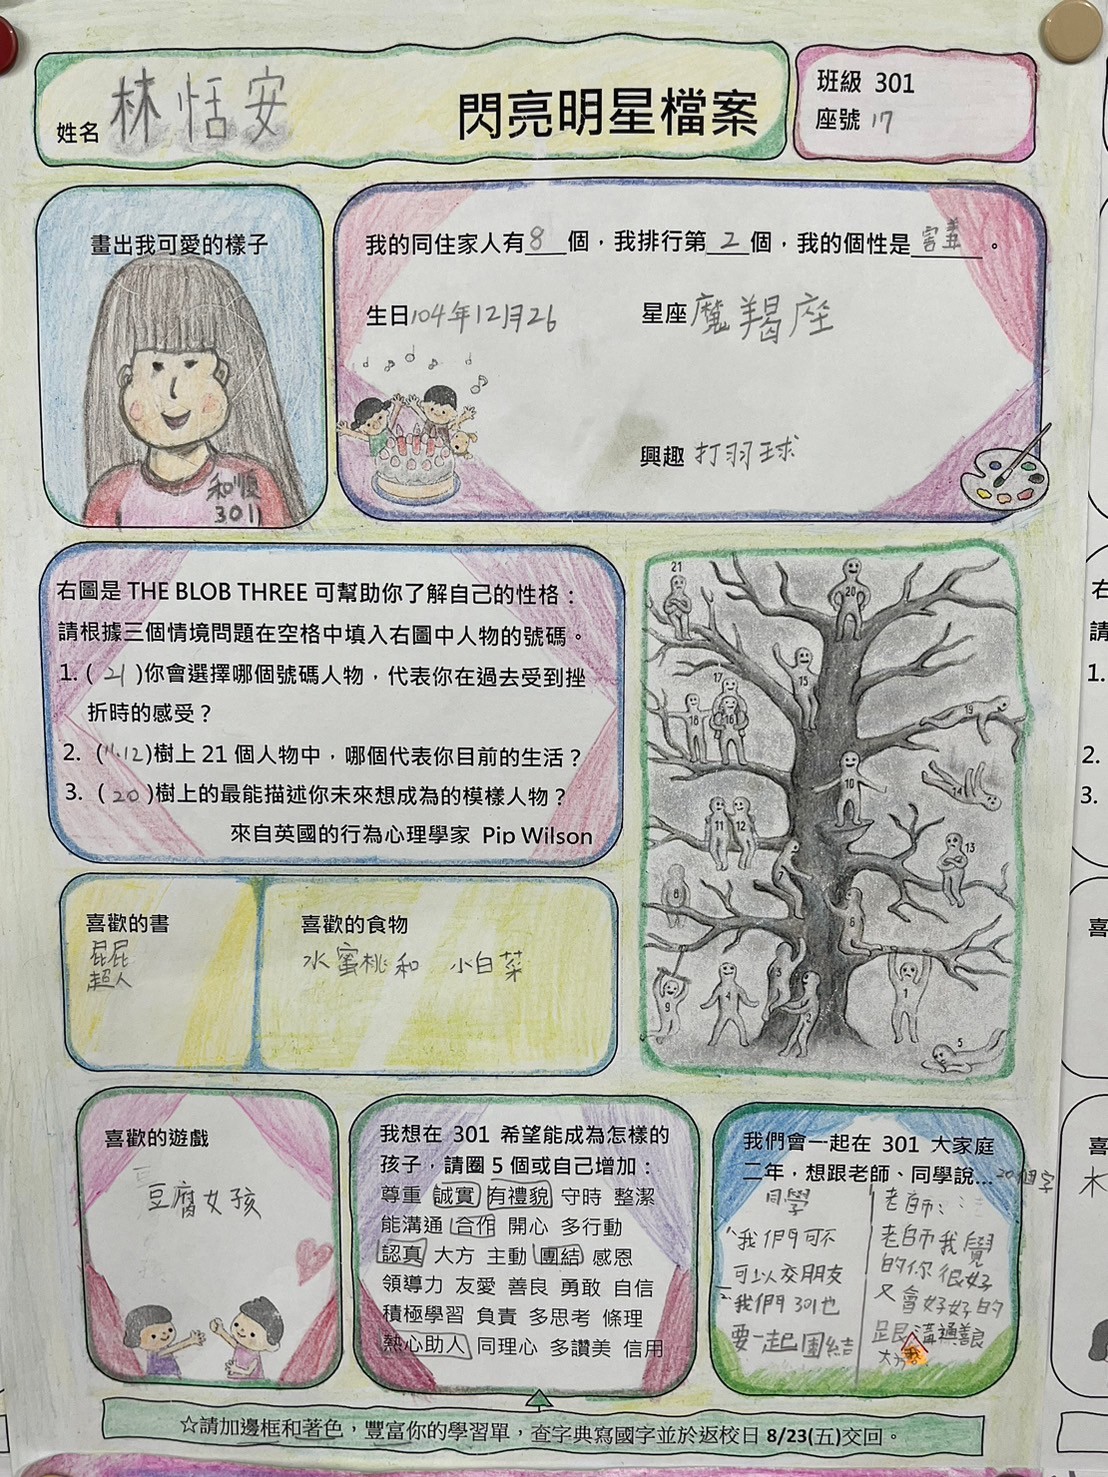 姓名 林恬安
閃亮明星檔案
班級 301
座號 17
畫出我可愛的樣子
和順
301
我的同住家人有8個，我排行第2個，我的個性是害羞。
生日104年12月26
星座魔羯座
興趣 打羽球
右圖是 THE BLOB THREE 可幫助你了解自己的性格：
請根據三個情境問題在空格中填入右圖中人物的號碼。
1. ( 21 )你會選擇哪個號碼人物，代表你在過去受到挫
折時的感受？
2. (11.12)樹上 21 個人物中，哪個代表你目前的生活？
3. ( 20 )樹上的最能描述你未來想成為的模樣人物？
來自英國的行為心理學家 Pip Wilson
21
20
17
15
18
16
19
10
14
11
12
13
8
6
3
9
4
2
1
5
喜歡的書
屁屁
超人
喜歡的食物
水蜜桃和 小白菜
喜歡的遊戲
豆腐女孩
我想在 301 希望能成為怎樣的
孩子，請圈 5 個或自己增加：
尊重 誠實 有禮貌 守時 整潔
能溝通 合作 開心 多行動
認真 大方 主動 團結 感恩
領導力 友愛 善良 勇敢 自信
積極學習 負責 多思考 條理
熱心助人 同理心 多讚美 信用
我們會一起在 301 大家庭
二年，想跟老師、同學說...20個字
同學
我們可不
可以交朋友
我們301也
要一起團結
老師：
老師我覺
的你很好
又會好好的
跟溝通善良
大方
☆請加邊框和著色，豐富你的學習單，查字典寫國字並於返校日 8/23(五)交回。
右
請
1.
2.
3.
喜
喜
木